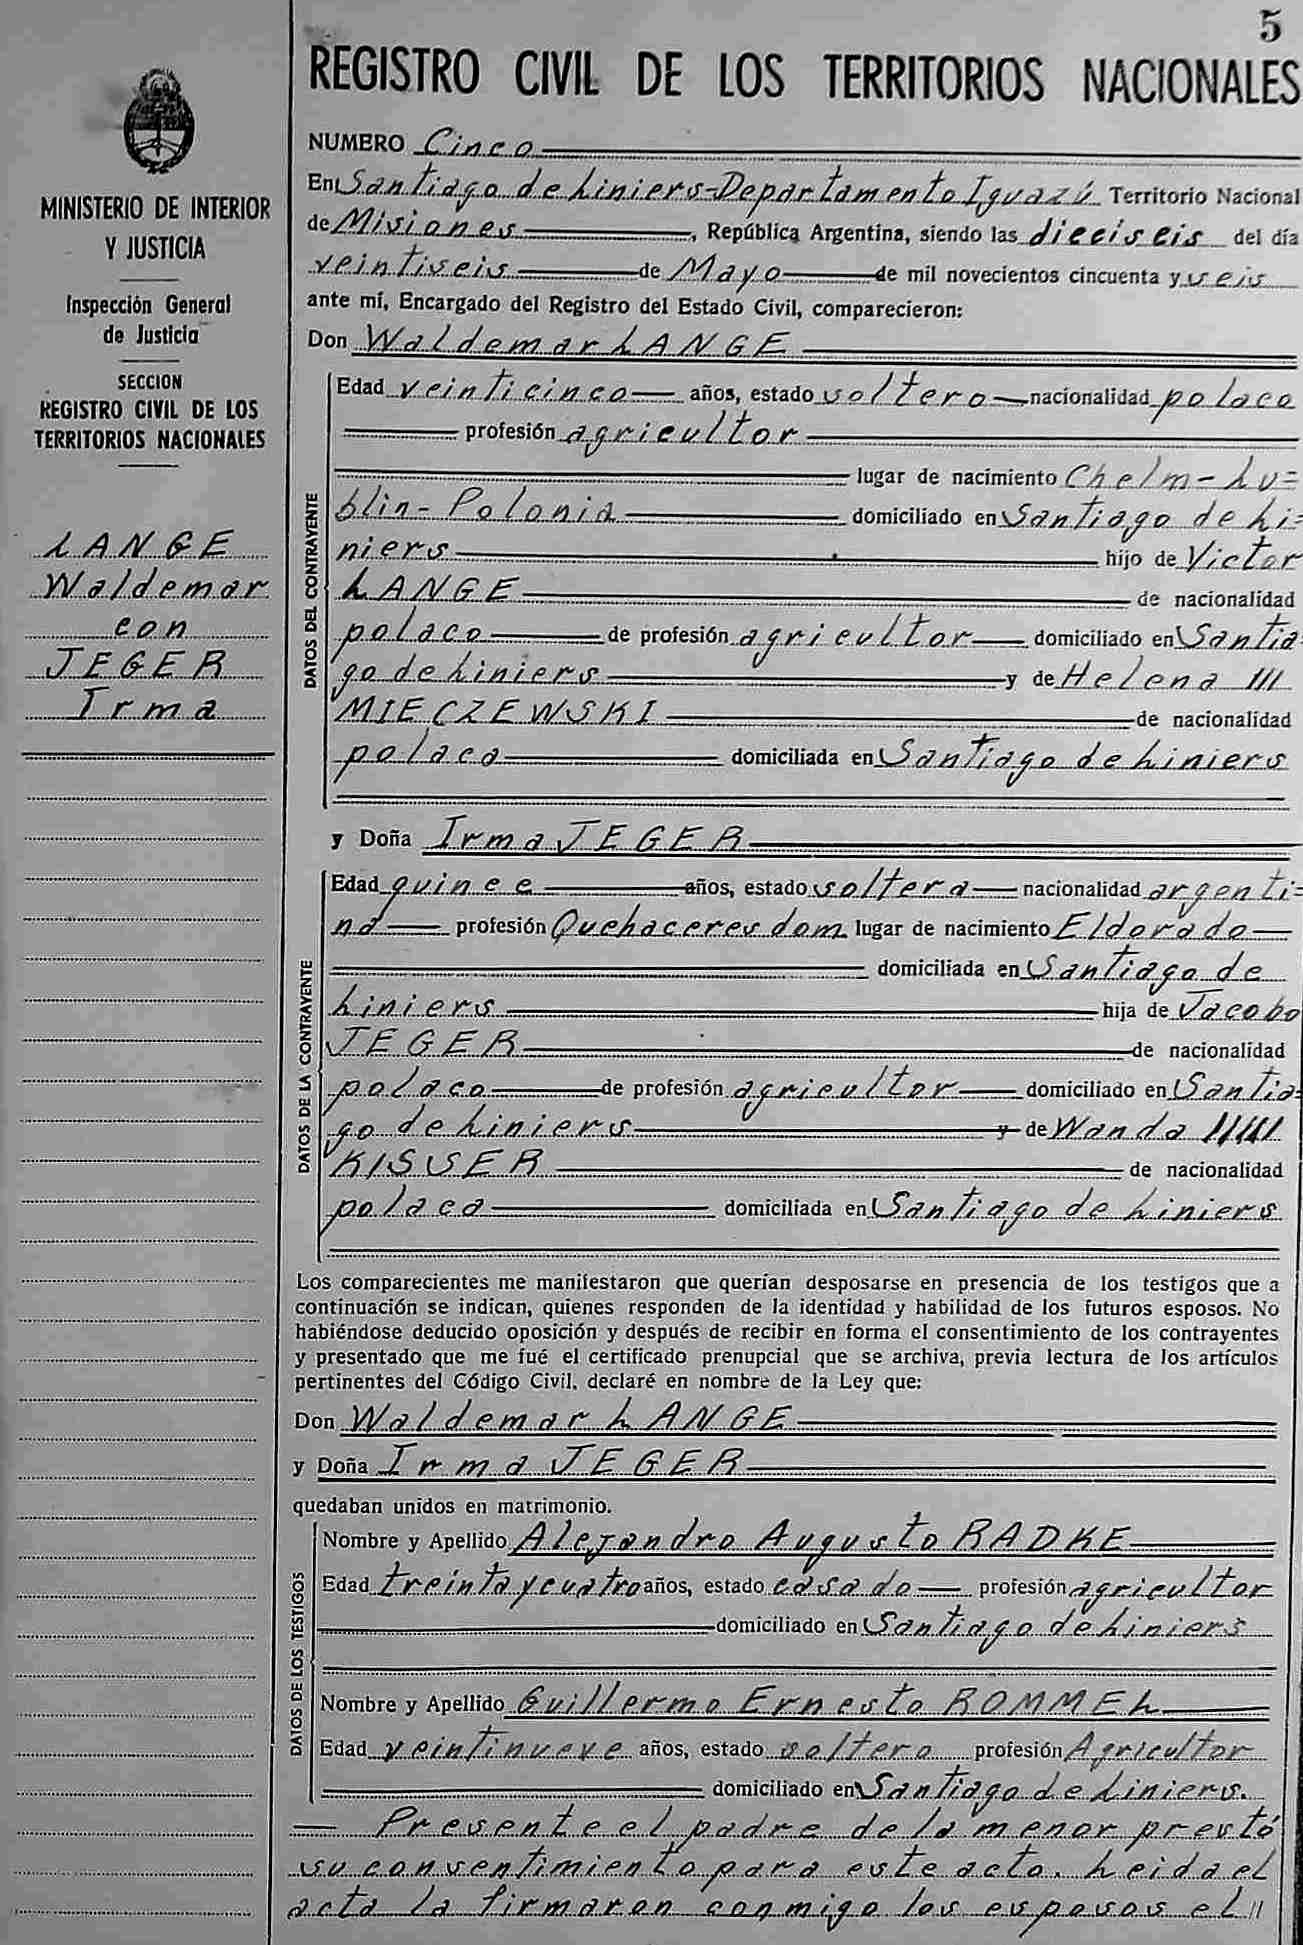 5
REGISTRO CIVIL DE LOS TERRITORIOS NACIONALES
MINISTERIO DE INTERIOR
Y JUSTICIA
Inspección General
de Justicia
SECCION
REGISTRO CIVIL DE LOS
TERRITORIOS NACIONALES
LANGE
Waldemar
con
JEGER
Irma
NUMERO Cinco
En Santiago de Liniers-Departamento Iguazú Territorio Nacional
de Misiones, República Argentina, siendo las dieciseis del día
veintiseis de Mayo de mil novecientos cincuenta y seis
ante mí, Encargado del Registro del Estado Civil, comparecieron:
Don Waldemar LANGE
DATOS DEL CONTRAYENTE
Edad veinticinco años, estado soltero nacionalidad polaco
profesión agricultor
lugar de nacimiento Chelm-Lu=
blin-Polonia domiciliado en Santiago de Li=
niers hijo de Victor
LANGE de nacionalidad
polaco de profesión agricultor domiciliado en Santia
go de Liniers y de Helena ///
MIECZEWSKI de nacionalidad
polaca domiciliada en Santiago de Liniers
y Doña Irma JEGER
DATOS DE LA CONTRAYENTE
Edad quince años, estado soltera nacionalidad argenti=
na profesión Quehaceres dom. lugar de nacimiento Eldorado
domiciliada en Santiago de
Liniers hija de Jacobo
JEGER de nacionalidad
polaco de profesión agricultor domiciliado en Santia=
go de Liniers y de Wanda /////
KISSER de nacionalidad
polaca domiciliada en Santiago de Liniers
Los comparecientes me manifestaron que querían desposarse en presencia de los testigos que a
continuación se indican, quienes responden de la identidad y habilidad de los futuros esposos. No
habiéndose deducido oposición y después de recibir en forma el consentimiento de los contrayentes
y presentado que me fué el certificado prenupcial que se archiva, previa lectura de los artículos
pertinentes del Código Civil, declaré en nombre de la Ley que:
Don Waldemar LANGE
y Doña Irma JEGER
quedaban unidos en matrimonio.
DATOS DE LOS TESTIGOS
Nombre y Apellido Alejandro Augusto RADKE
Edad treinta y cuatro años, estado casado profesión agricultor
domiciliado en Santiago de Liniers
Nombre y Apellido Guillermo Ernesto ROMMEL
Edad veintinueve años, estado soltero profesión Agricultor
domiciliado en Santiago de Liniers.
— Presente el padre de la menor prestó
su consentimiento para este acto. Leida el
acta la firmaron conmigo los esposos el //